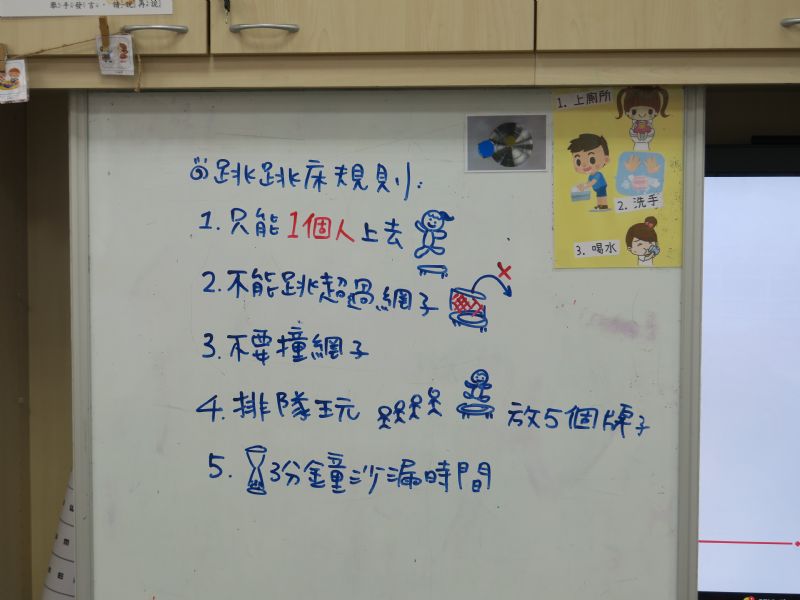 舉手發言，請說再說
1. 上廁所
2. 洗手
3. 喝水
跳跳床規則:
1. 只能1個人上去
2. 不能跳超過網子
3. 不要撞網子
4. 排隊玩 放5個牌子
5. 3分鐘沙漏時間